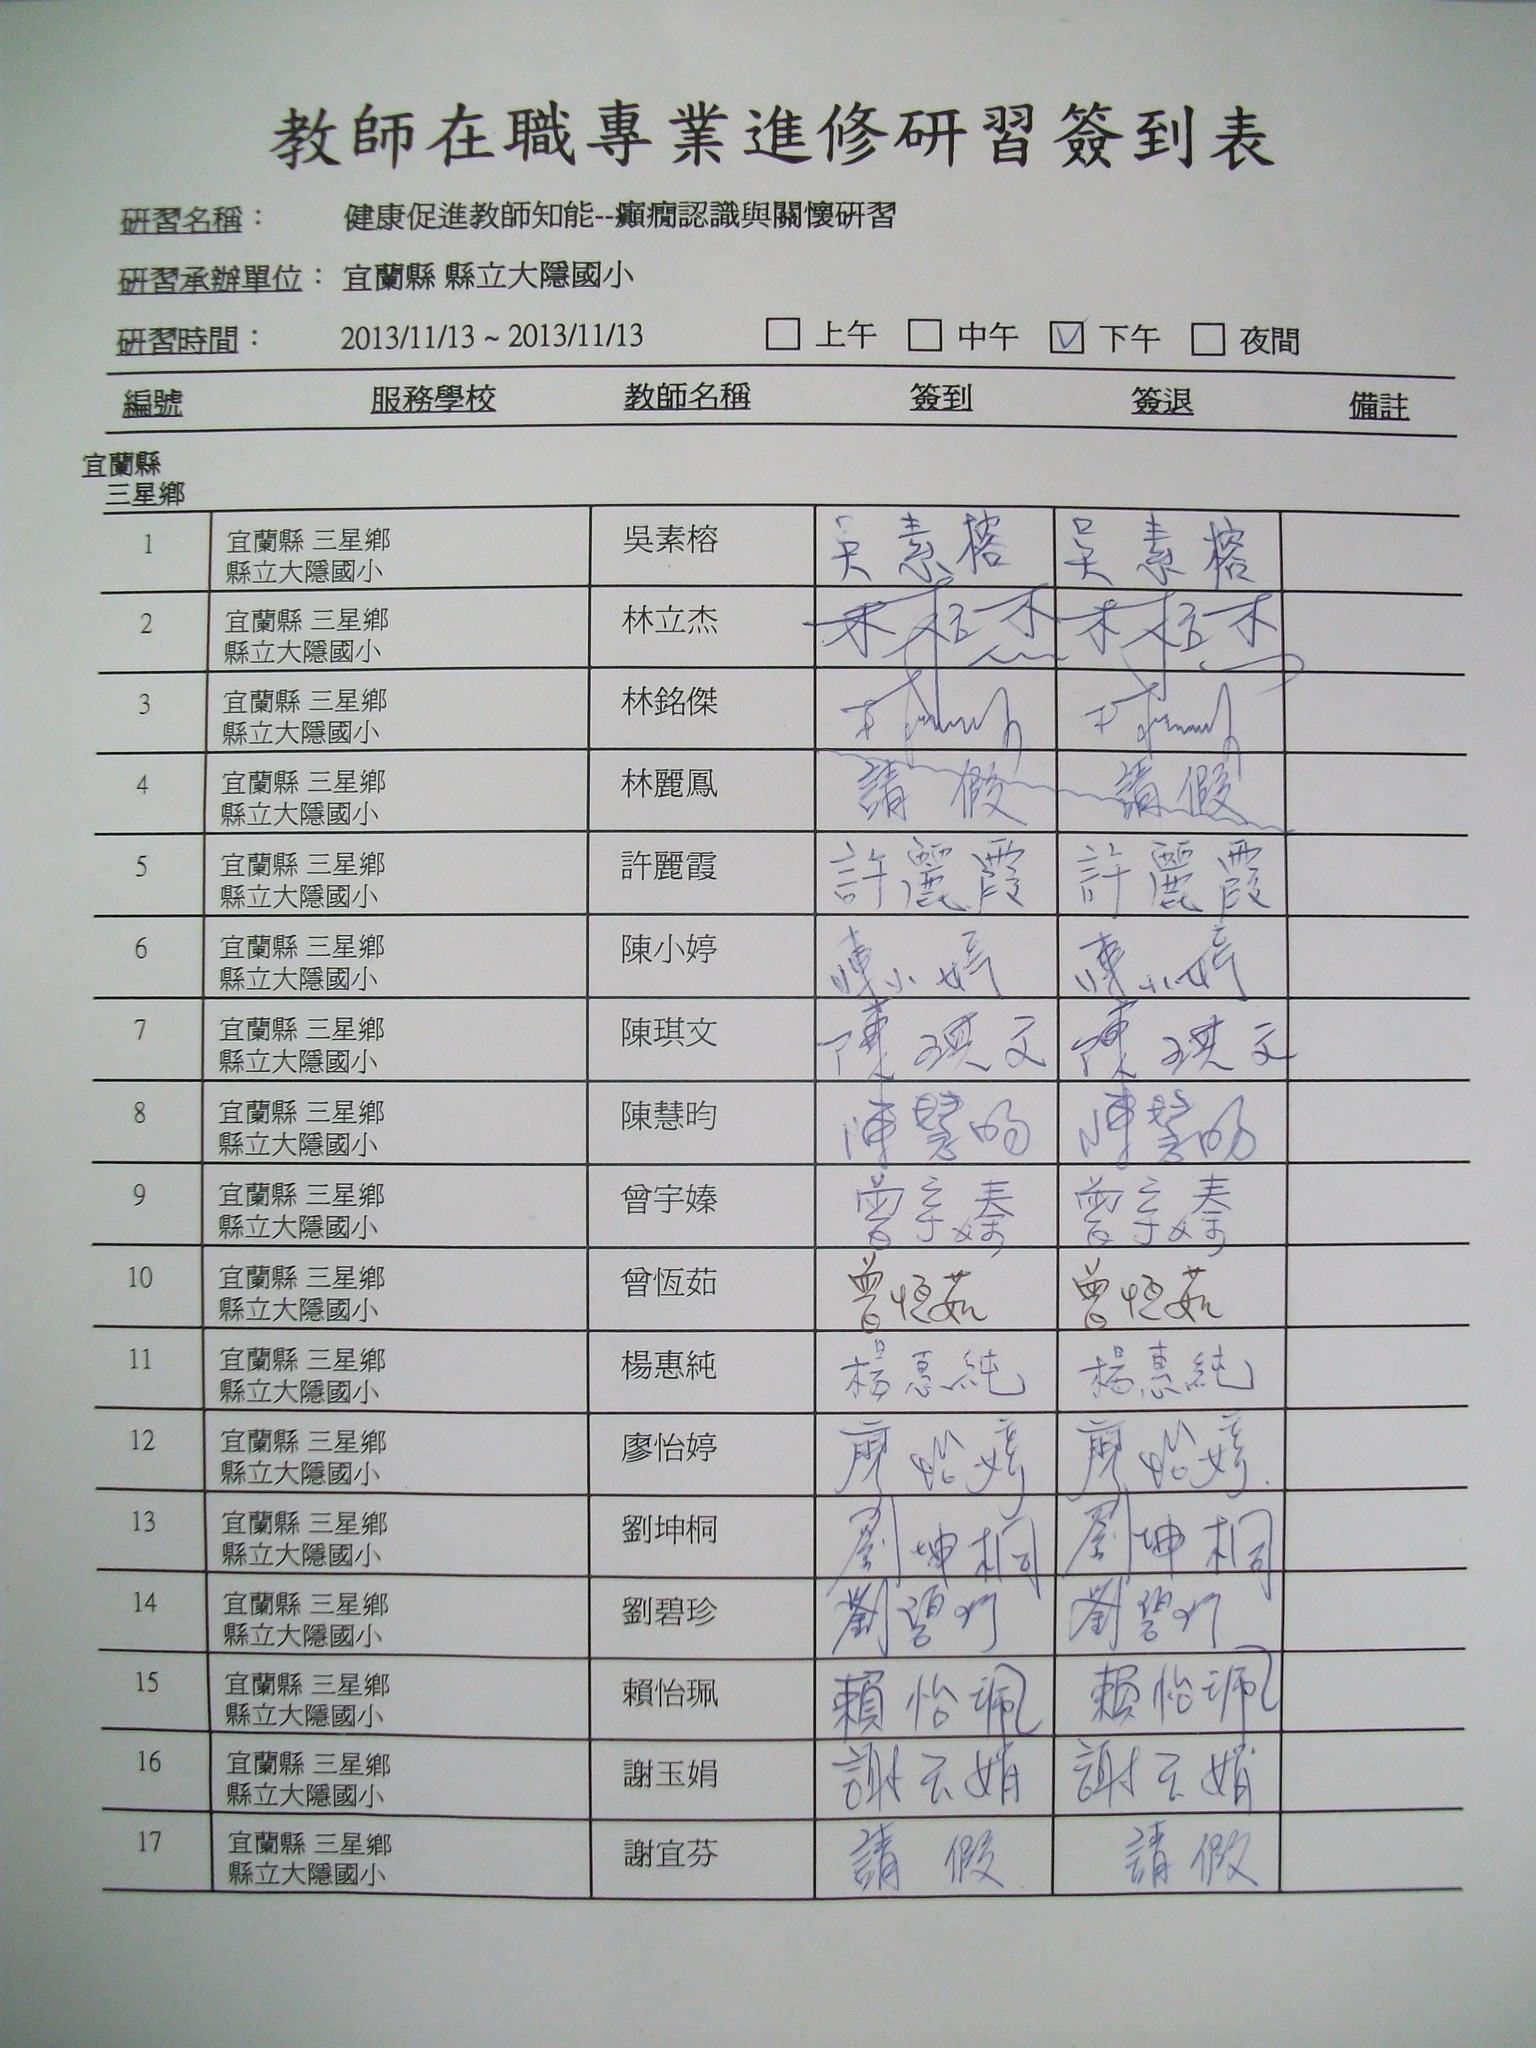 教師在職專業進修研習簽到表
研習名稱： 健康促進教師知能--癲癇認識與關懷研習
研習承辦單位： 宜蘭縣 縣立大隱國小
研習時間： 2013/11/13 ~ 2013/11/13 上午 中午 下午 夜間
編號 服務學校 教師名稱 簽到 簽退 備註
宜蘭縣
三星鄉
1 宜蘭縣 三星鄉 吳素榕 吳素榕 吳素榕
縣立大隱國小
2 宜蘭縣 三星鄉 林立杰 林立杰 林立杰
縣立大隱國小
3 宜蘭縣 三星鄉 林銘傑
縣立大隱國小
4 宜蘭縣 三星鄉 林麗鳳 請假 請假
縣立大隱國小
5 宜蘭縣 三星鄉 許麗霞 許麗霞 許麗霞
縣立大隱國小
6 宜蘭縣 三星鄉 陳小婷 陳小婷 陳小婷
縣立大隱國小
7 宜蘭縣 三星鄉 陳琪文 陳琪文 陳琪文
縣立大隱國小
8 宜蘭縣 三星鄉 陳慧昀 陳慧昀 陳慧昀
縣立大隱國小
9 宜蘭縣 三星鄉 曾宇嫀 曾宇嫀 曾宇嫀
縣立大隱國小
10 宜蘭縣 三星鄉 曾恆茹 曾恆茹 曾恆茹
縣立大隱國小
11 宜蘭縣 三星鄉 楊惠純 楊惠純 楊惠純
縣立大隱國小
12 宜蘭縣 三星鄉 廖怡婷 廖怡婷 廖怡婷
縣立大隱國小
13 宜蘭縣 三星鄉 劉坤桐 劉坤桐 劉坤桐
縣立大隱國小
14 宜蘭縣 三星鄉 劉碧珍 劉碧珍 劉碧珍
縣立大隱國小
15 宜蘭縣 三星鄉 賴怡珮 賴怡珮 賴怡珮
縣立大隱國小
16 宜蘭縣 三星鄉 謝玉娟 謝玉娟 謝玉娟
縣立大隱國小
17 宜蘭縣 三星鄉 謝宜芬 請假 請假
縣立大隱國小